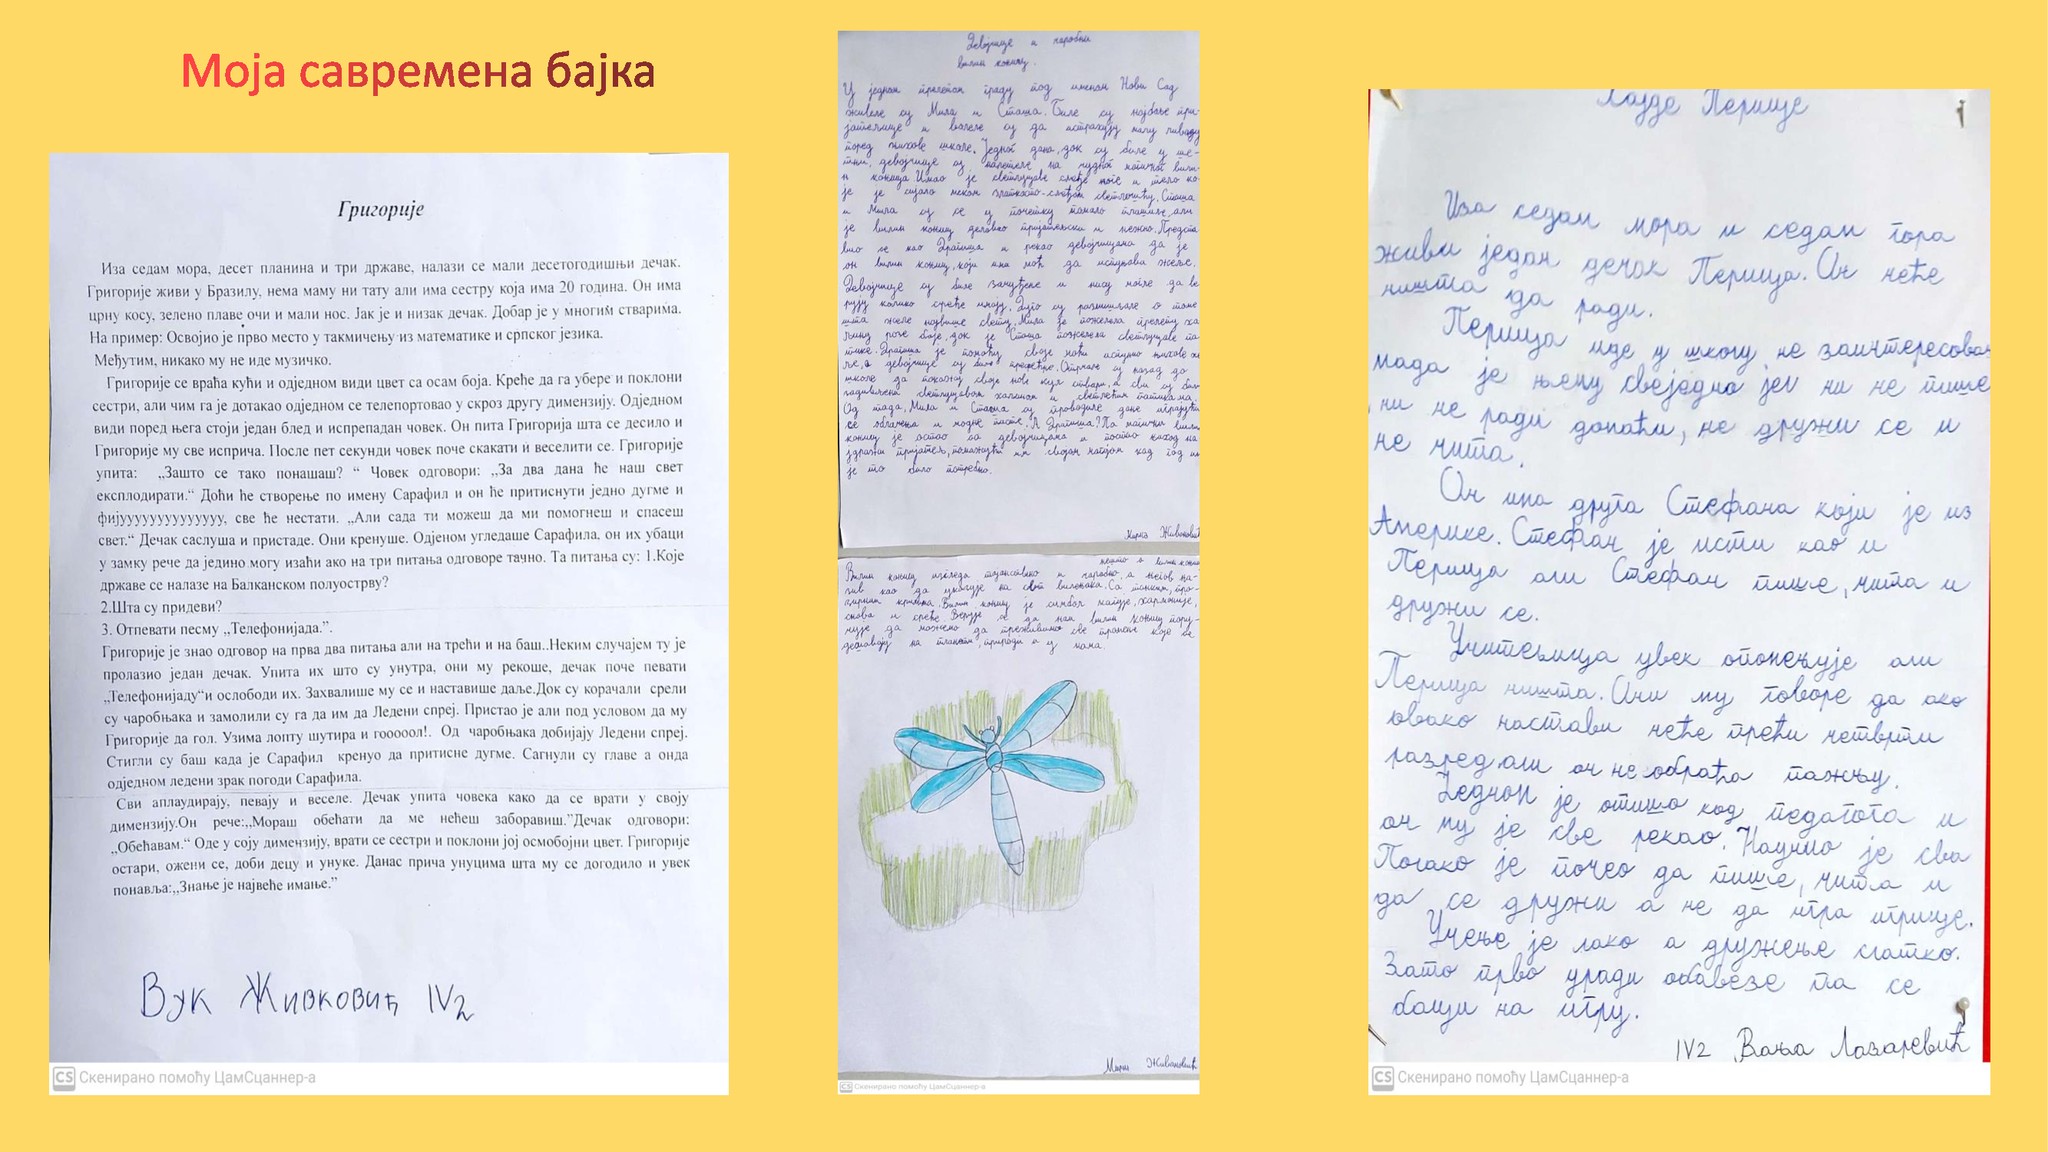 Моја савремена бајка
Григорије
Иза седам мора, десет планина и три државе, налази се мали десетогодишњи дечак.
Григорије живи у Бразилу, нема маму ни тату али има сестру која има 20 година. Он има
црну косу, зелено плаве очи и мали нос. Јак је и низак дечак. Добар је у многим стварима.
На пример: Освојио је прво место у такмичењу из математике и српског језика.
Међутим, никако му не иде музичко.
Григорије се враћа кући и одједном види цвет са осам боја. Креће да га убере и поклони
сестри, али чим га је дотакао одједном се телепортовао у скроз другу димензију. Одједном
види поред њега стоји један блед и испрепадан човек. Он пита Григорија шта се десило и
Григорије му све исприча. После пет секунди човек поче скакати и веселити се. Григорије
упита: „Зашто се тако понашаш? “ Човек одговори: „За два дана ће наш свет
експлодирати.“ Доћи ће створење по имену Сарафил и он ће притиснути једно дугме и
фијууууууууууууу, све ће нестати. „Али сада ти можеш да ми помогнеш и спасеш
свет.“ Дечак саслуша и пристаде. Они кренуше. Одјеном угледаше Сарафила, он их убаци
у замку рече да једино могу изаћи ако на три питања одговоре тачно. Та питања су: 1.Које
државе се налазе на Балканском полуострву?
2.Шта су придеви?
3. Отпевати песму „Телефонијада.”.
Григорије је знао одговор на прва два питања али на трећи и на баш..Неким случајем ту је
пролазио један дечак. Упита их што су унутра, они му рекоше, дечак поче певати
„Телефонијаду“и ослободи их. Захвалише му се и наставише даље.Док су корачали срели
су чаробњака и замолили су га да им да Ледени спреј. Пристао је али под условом да му
Григорије да гол. Узима лопту шутира и гооооол!. Од чаробњака добијају Ледени спреј.
Стигли су баш када је Сарафил кренуо да притисне дугме. Сагнули су главе а онда
одједном ледени зрак погоди Сарафила.
Сви аплаудирају, певају и веселе. Дечак упита човека како да се врати у своју
димензију.Он рече:,,Мораш обећати да ме нећеш заборавиш.”Дечак одговори:
„Обећавам.“ Оде у соју димензију, врати се сестри и поклони јој осмобојни цвет. Григорије
остари, ожени се, доби децу и унуке. Данас прича унуцима шта му се догодило и увек
понавља:,,Знање је највеће имање.”
Вук Живковић IV2
CS Скенирано помоћу ЦамСцаннер-а
Девојчице и чаробни
вилин коњиц.
У једном прелепом граду под именом Нови Сад
живеле су Мила и Сташа. Биле су најбоље при-
јатељице и волеле су да истражују малу ливаду
поред њихове школе. Једног дана, док су биле у ше-
тњи, девојчице су налетеле на чудног вили-
н коњица. Имао је светлуцаве смеђе ноге и тело ко-
је је сијало меком златкасто-смеђом светлошћу. Сташа
и Мила су се у почетку помало плашиле, али
је вилин коњиц деловао пријатељски и нежно. Предста
вио се као Драгиша и рекао девојчицама да је
он вилин коњиц, који има моћ да испуњава жеље.
Девојчице су биле зачуђене и нису могле да ве
рују колико среће имају. Дуго су размишљале о томе
шта желе највише свету. Мила је пожелела прелепу ха
љину розе боје, док је Сташа пожелела светлуцаве па
тике. Драгиша је помоћу своје моћи испунио њихове же
ље, а девојчице су биле пресрећне. Отрчале су назад до
школе да покажу своје нове ствари, а сви су били
задивљени светлуцавом хаљином и светлећим патикама.
Од тада, Мила и Сташа су проводиле дане играјући
се облачења и модне писте. А Драгиша? Па магични вилин
коњиц је остао са девојчицама и постао њихов нај
здрави пријатељ, помажући им својом магијом кад год им
је то било потребно.
Живановић
Вилин коњиц изгледа тајанствено и чаробно, а његов на-
зив као да указује на свет вилењака. Са танким, про-
зирним крилима. Вилин коњиц је симбол магије, хармоније,
снова и среће. Верује се да нам вилин коњиц пору-
чује да можемо да преживимо све промене које се
дешавају на планети, природи а и у нама.
Живановић
CS Скенирано помоћу ЦамСцаннер-а
Лајде Перице
Иза седам мора и седам гора
живи један дечак Перица. Он неће
ништа да ради.
Перица иде у школу не заинтересован
мада је њему свеједно јел ни не пише
ни не ради домаћи, не дружи се и
не чита.
Он има друга Стефана који је из
Америке. Стефан је исти као и
Перица али Стефан пише, чита и
дружи се.
Учитељица увек опомењује али
Перица ништа. Они му говоре да ако
овако настави неће прећи четврти
разред али он не обраћа пажњу.
Једном је отишо код педагога и
он му је све рекао. Научио је сва
Полако је почео да пише, чита и
да се дружи а не да игра игрице.
Учење је лако а дружење слатко.
Зато прво уради обавезе па се
баци на игру.
IV2 Вања Лазаревић
CS Скенирано помоћу ЦамСцаннер-а